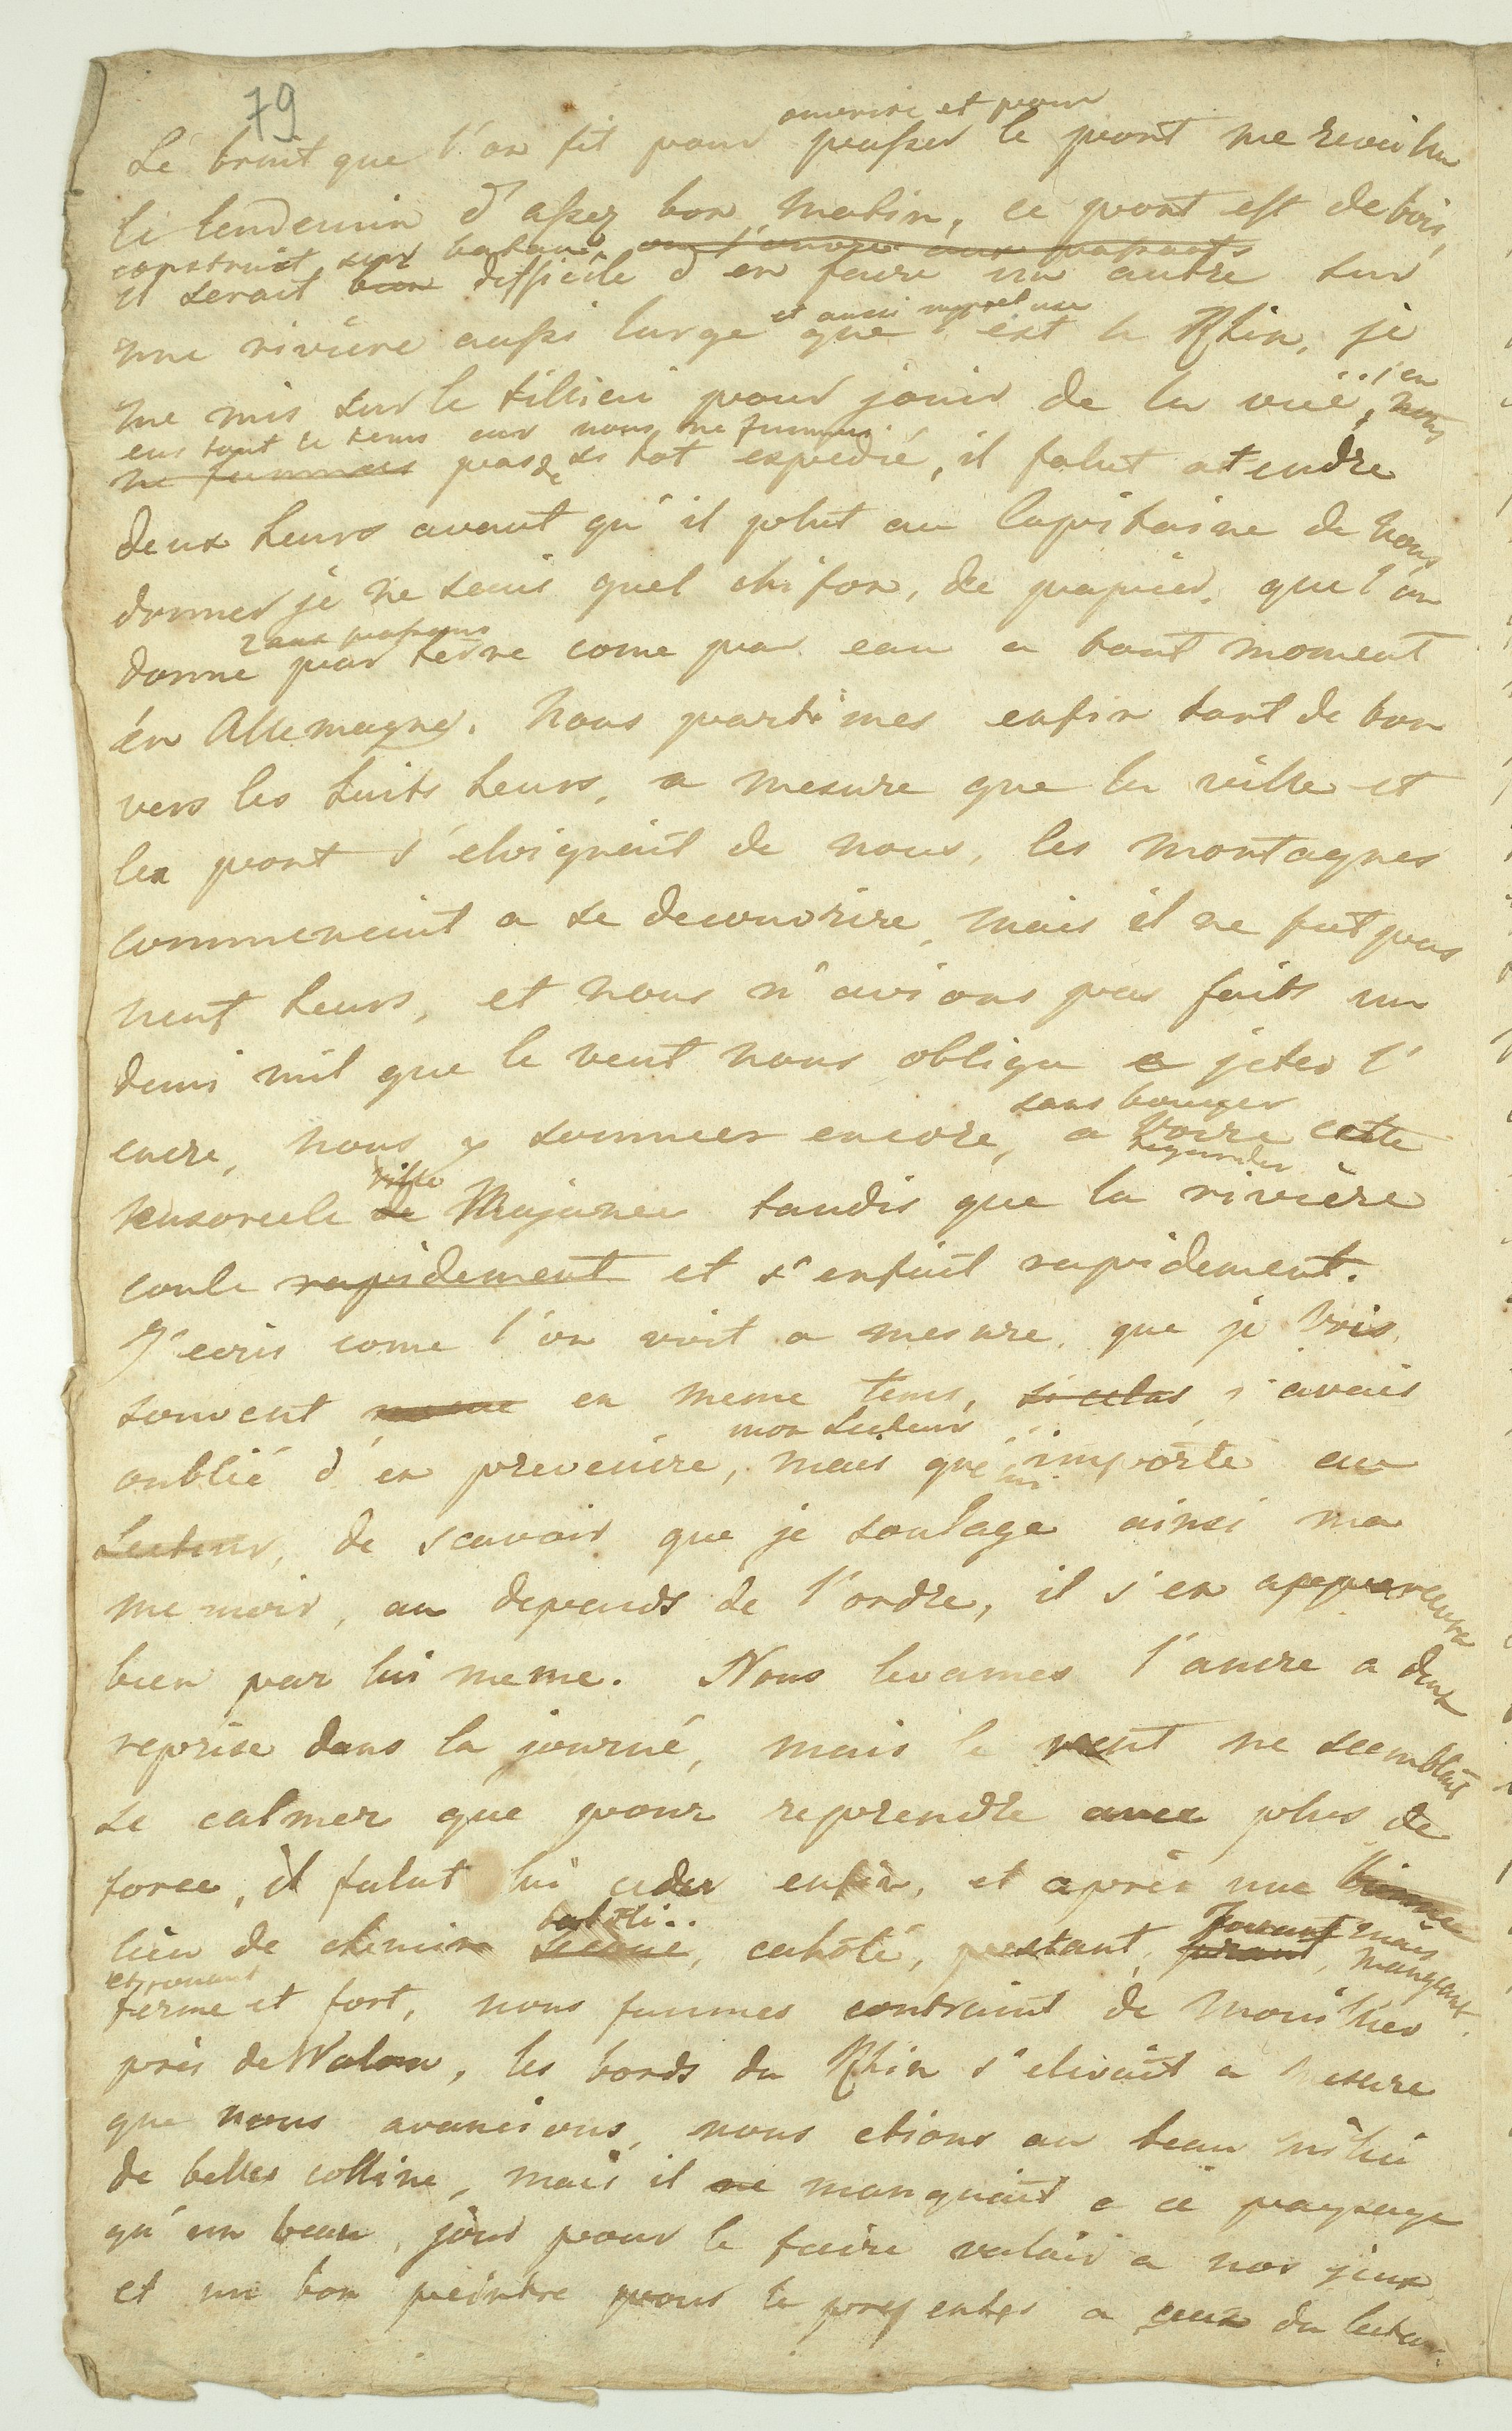 79
ouvrire et pour
Le bruit que l'on fit pour passer le pont me reveilla
le lendemin d'assez bon matin, ce pont est de bois,
construit sur bateau, aux passants
il serait bien difficile d'en faire un autre sur
et aussi
une riviere aussi large que l'est le Rhin, je
me mis sur le tillieu pour jouir de la vuë, j'en
eus tout le tems car nous ne fumme. nous
ne fummes pas si tot expedié, il falut atendre
deux heurs avant qu'il plut au Capitaine de nous
donner je ne sais quel chifon, de papier, que l'on
aux passans
donne par terre come par eau a tout moment
én Allemagne. Nous partimes enfin tant de bon
vers les huits heurs, a mesure que la ville et
les pont s'eloignait de nous, les montagnes
commencint a se decouvrire, mais il ne fut pas
neuf heurs, et nous n'avions pas faits un
demi mil que le vent nous obliga a jeter l'
sans bouger
encre, nous y sommes encore, a voire cette
regarder
ville
ensorcele de Majance tandis que la rivière
coule rapidement et s'enfuit rapidement.
J'ecris come l'on voit a mesure, que je vois
souvent meme en meme tems, si cela j'avais
mon Lecteur
oublié d'en prevenire, mais que lui importe au
Lecteur, de scavoir que je soulage ainsi ma
memoir, au depends de l'ordre, il s'en appercevra
bien par lui meme. Nous levames l'ancre a deux
reprise dans la journé, mais le vent ne semblait
se calmer que pour reprendre avec plus de
force, il falut lui ceder enfin, et après une bonne
lieu de chemin, cahôté, pestant, jurant, mais mangeant
et
ferme et fort, nous fummes contraint de mouiller
près de Walau, les bords du Rhin s'elevait a mesure
que nous avancions, nous etions au beau milieu
de belles colline, mais il ne manquait a ce paysage
qu'un beau jour pour le faire valoir a nos yeux
et un bon peintre pour le presenter a ceux du lecteur.